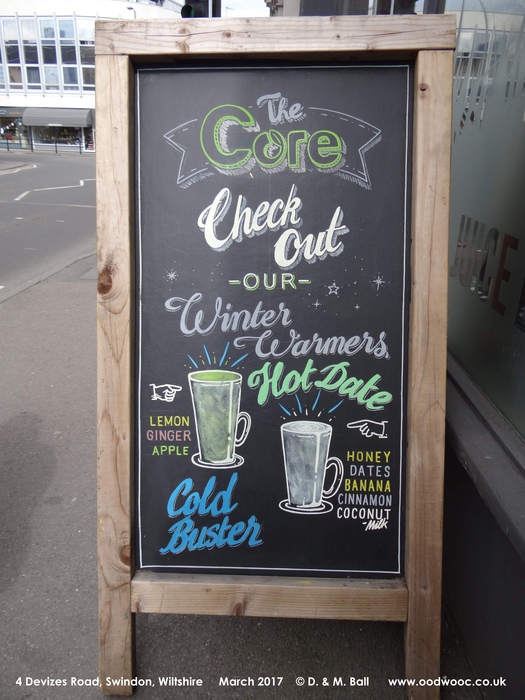 The
Core
Check
Out
-OUR-
Winter
Warmers
Hot Date
LEMON
GINGER
APPLE
HONEY
DATES
BANANA
CINNAMON
COCONUT
-Milk
Cold
Buster
JUICE
4 Devizes Road, Swindon, Wiltshire March 2017 © D. & M. Ball www.oodwooc.co.uk